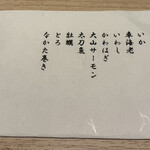 いか
車海老
いわし
かわはぎ
大山サーモン
太刀魚
牡蠣
とろ
なかた巻き